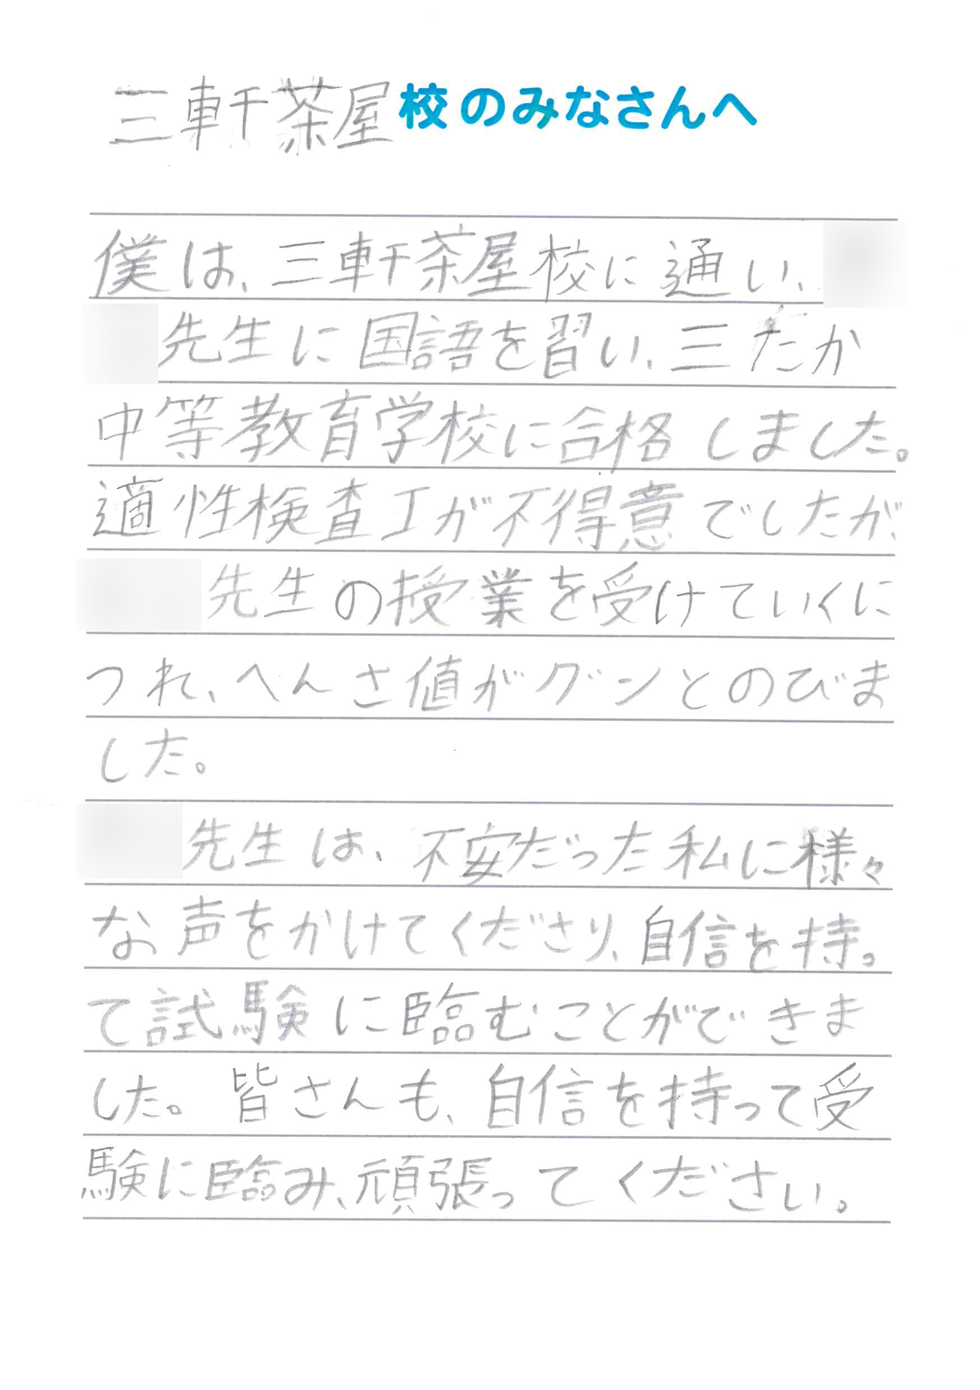 三軒茶屋校のみなさんへ
僕は、三軒茶屋校に通い、
先生に国語を習い、三たか
中等教育学校に合格しました。
適性検査Iが不得意でしたが、
先生の授業を受けていくに
つれ、へんさ値がグンとのびま
した。
先生は、不安だった私に様々
な声をかけてくださり、自信を持っ
て試験に臨むことができま
した。皆さんも、自信を持って受
験に臨み、頑張ってください。